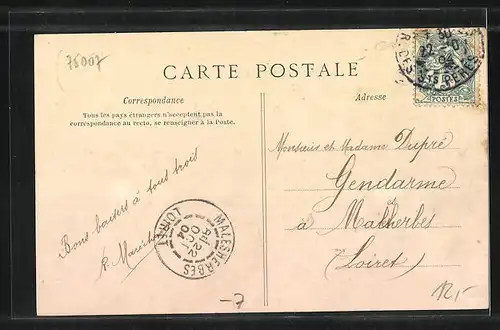 (75007
CARTE POSTALE
Correspondance
Tous les pays étrangers n'acceptent pas la
correspondance au recto, se renseigner à la Poste.
Bons baisers à tous trois
Adresse
Monsieur et Madame Dupré
Gendarme
à Malherbes
(Loiret)
MALESHERBES
22
OCT
04
LOIRET
22
04
POSTES
-7
12,-